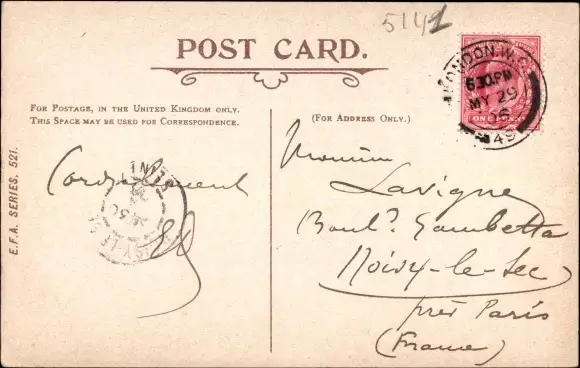 5141
POST CARD.
FOR POSTAGE, IN THE UNITED KINGDOM ONLY.
THIS SPACE MAY BE USED FOR CORRESPONDENCE.
(FOR ADDRESS ONLY.)
E.F.A. SERIES, 521.
LONDON. W.C
6.30PM
MY 29
06
49
ONE PENNY
Cordialement
Monsieur
Lavigne
Boulᵈ. Gambetta
Noisy-le-Sec
près Paris
(France)
NOISY-LE-S